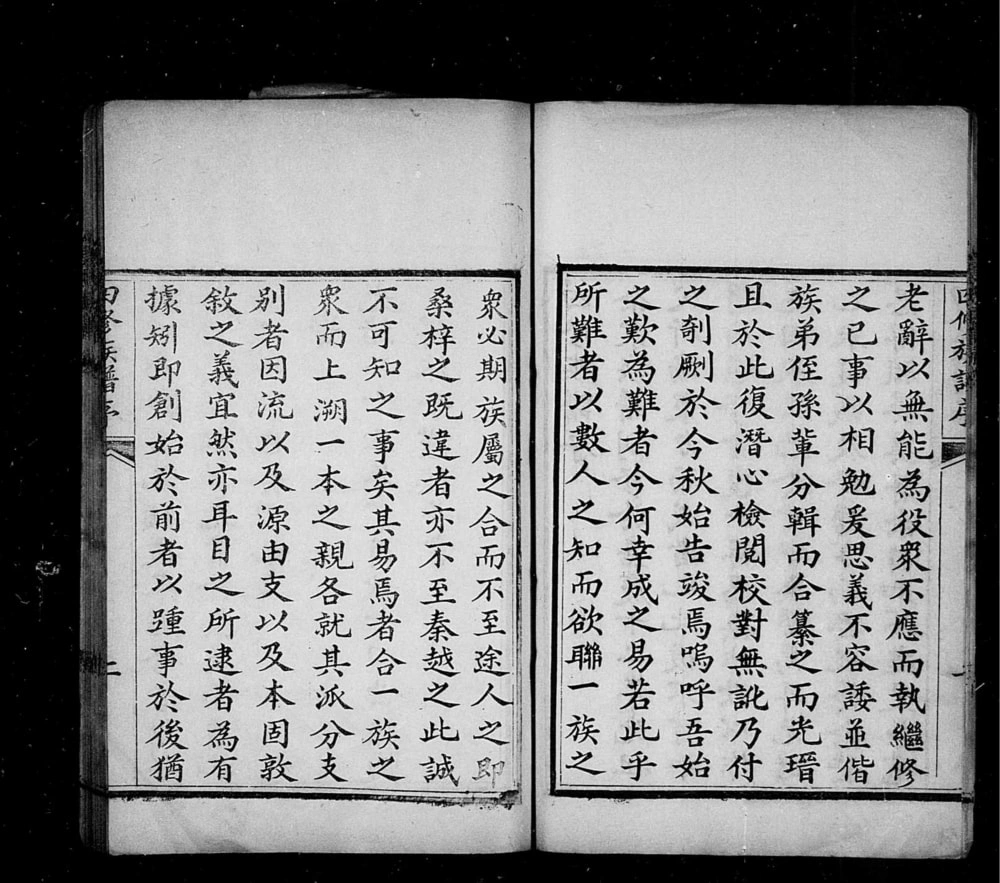 四修族譜序
一
老辭以無能為役眾不應而執繼修
之已事以相勉爰思義不容諉並偕
族弟侄孫輩分輯而合纂之而光瑨
且於此復潛心檢閱校對無訛乃付
之剞劂於今秋始告竣焉嗚呼吾始
之歎為難者今何幸成之易若此乎
所難者以數人之知而欲聯一族之
眾必期族屬之合而不至途人之即
桑梓之既違者亦不至秦越之此誠
不可知之事矣其易焉者合一族之
眾而上溯一本之親各就其派分支
別者因流以及源由支以及本固敦
敘之義宜然亦耳目之所逮者為有
據矧即創始於前者以踵事於後猶
四修族譜序
二